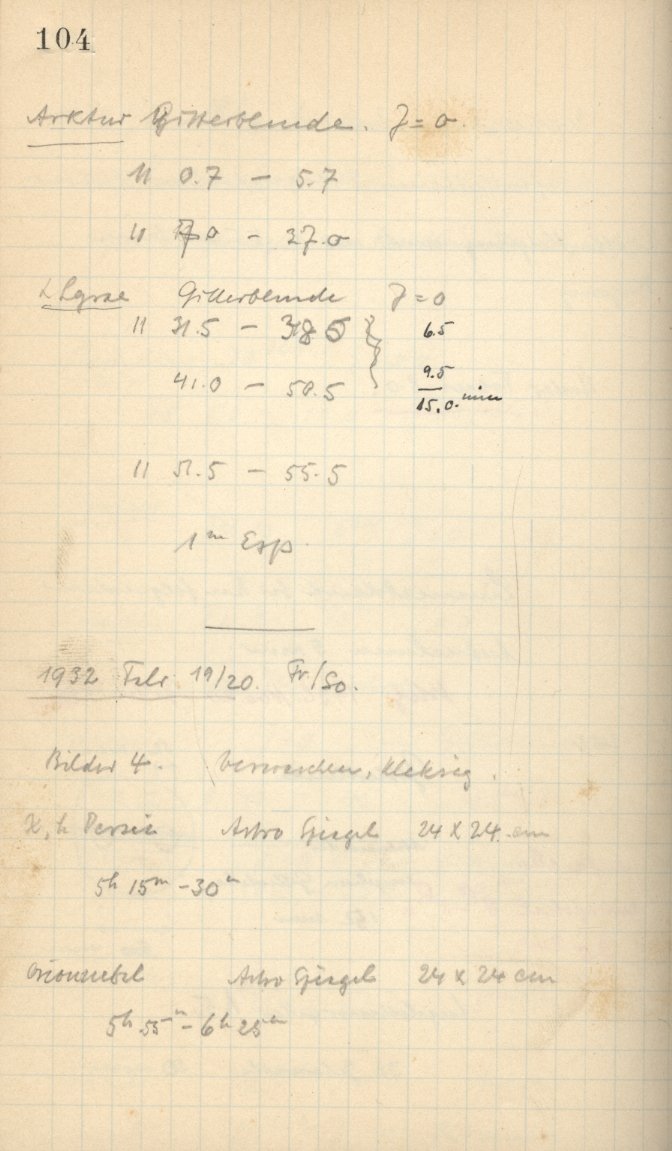 104
Arktur Gitterblende. J = 0.
11 0.7 – 5.7
11 7.0 – 27.0
α Lyrae Gitterblende J = 0
11 31.5 – 38.5 6.5
41.0 – 50.5 9.5
15.0. min
11 51.5 – 55.5
1m Exp.
1932 Febr 19/20. Fr/So.
Bilder 4. verwaschen, klecksig.
χ, h Persei Astro Spiegel 24 x 24 cm
5h 15m – 30m
Orionnebel Astro Spiegel 24 x 24 cm
5h 55m – 6h 25m